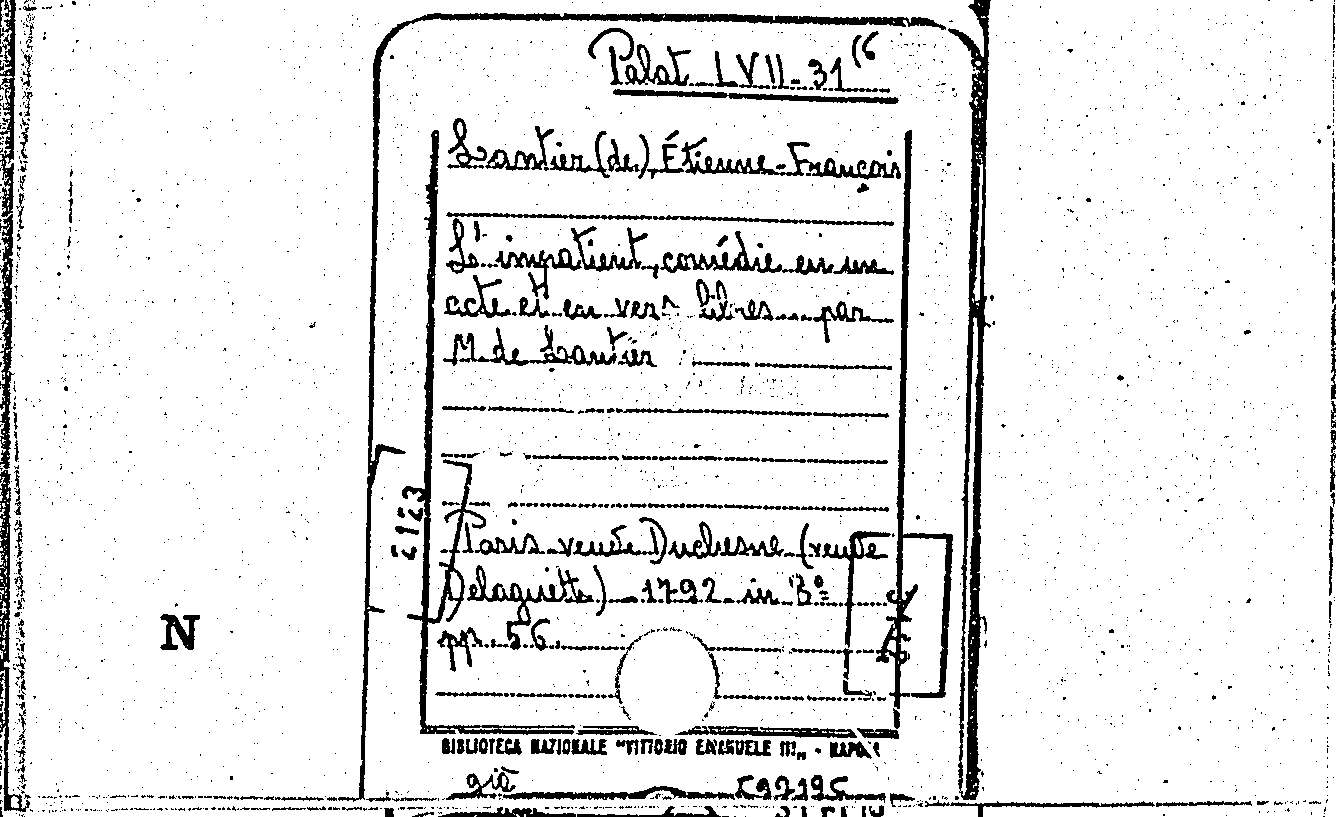 Palat LVII-31 (6
Lantier (de), Étienne-François
L'impatient, comédie en un
acte et en vers libres par
M. de Lantier
2123
Paris veuve Duchesne (veuve
Delaguette) 1792 in 8º
pp. 56.
N
BIBLIOTECA NAZIONALE "VITTORIO EMANUELE III„ - NAPOLI
già